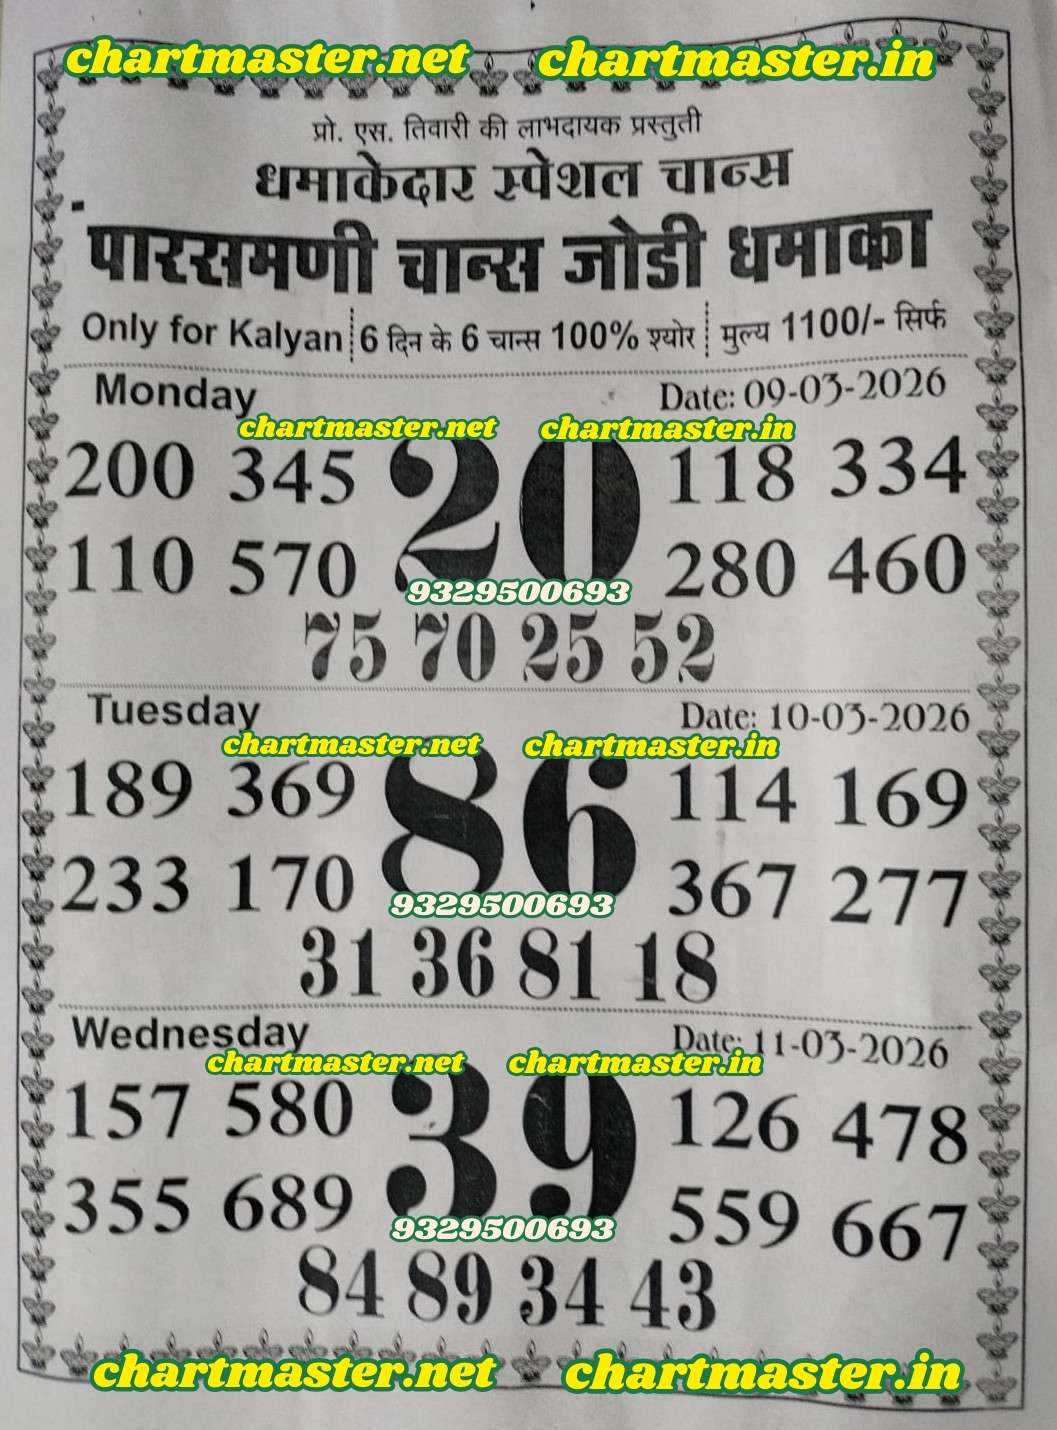 chartmaster.net chartmaster.in
प्रो. एस. तिवारी की लाभदायक प्रस्तुती
धमाकेदार स्पेशल चान्स
पारसमणी चान्स जोडी धमाका
Only for Kalyan 6 दिन के 6 चान्स 100% श्योर मुल्य 1100/- सिर्फ
Monday Date: 09-03-2026
chartmaster.net chartmaster.in
200 345 20 118 334
110 570 280 460
9329500693
75 70 25 52
Tuesday Date: 10-03-2026
chartmaster.net chartmaster.in
189 369 86 114 169
233 170 367 277
9329500693
31 36 81 18
Wednesday Date: 11-03-2026
chartmaster.net chartmaster.in
157 580 39 126 478
355 689 559 667
9329500693
84 89 34 43
chartmaster.net chartmaster.in